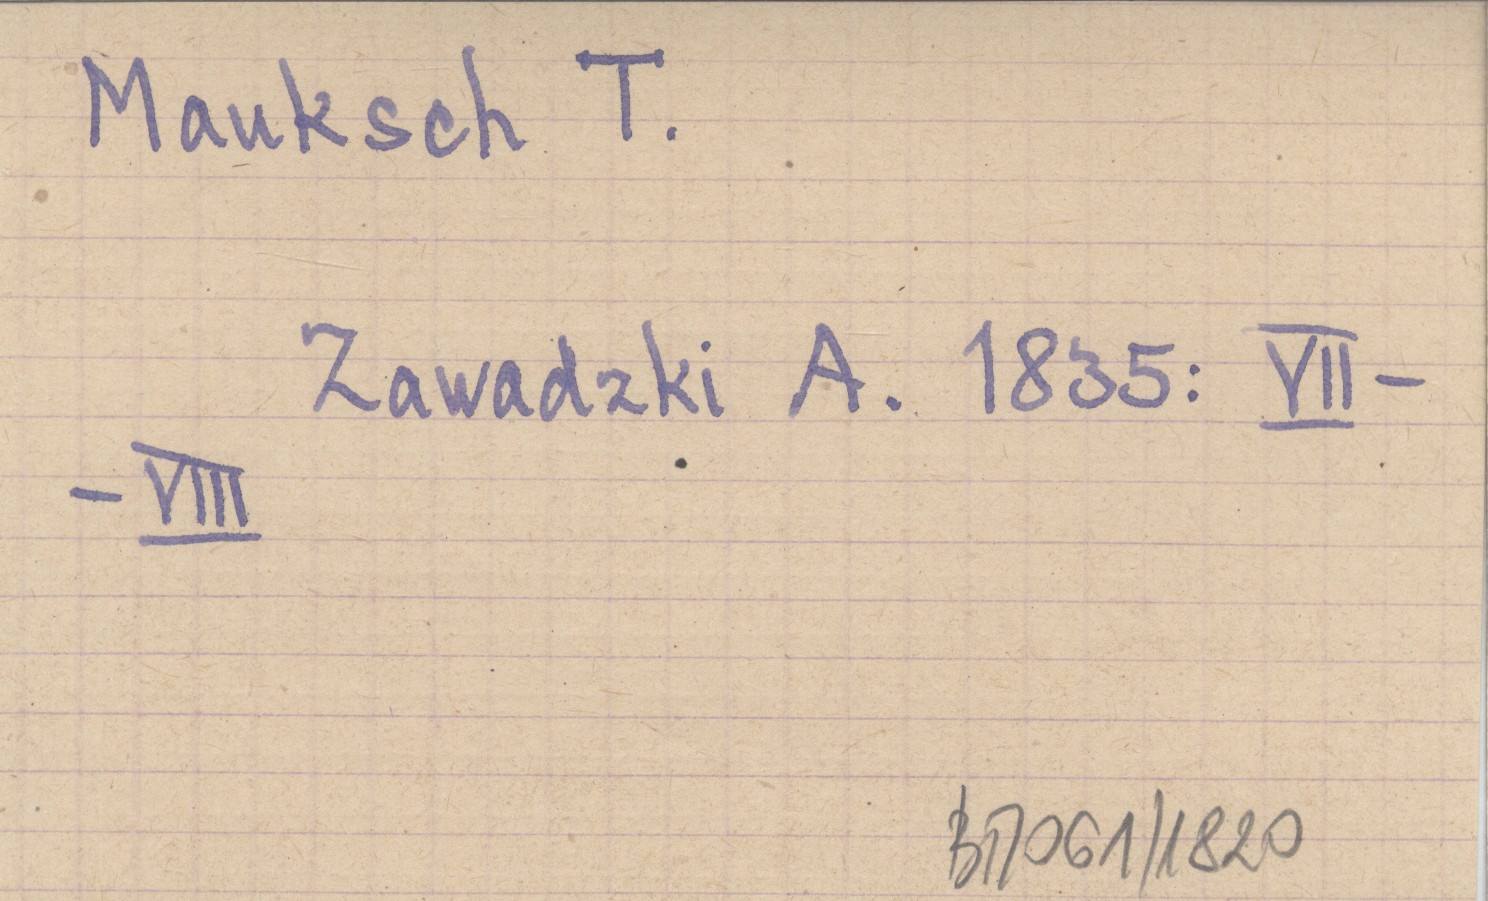 Mauksch T.
Zawadzki A. 1835: VII-
- VIII
B17061/1820